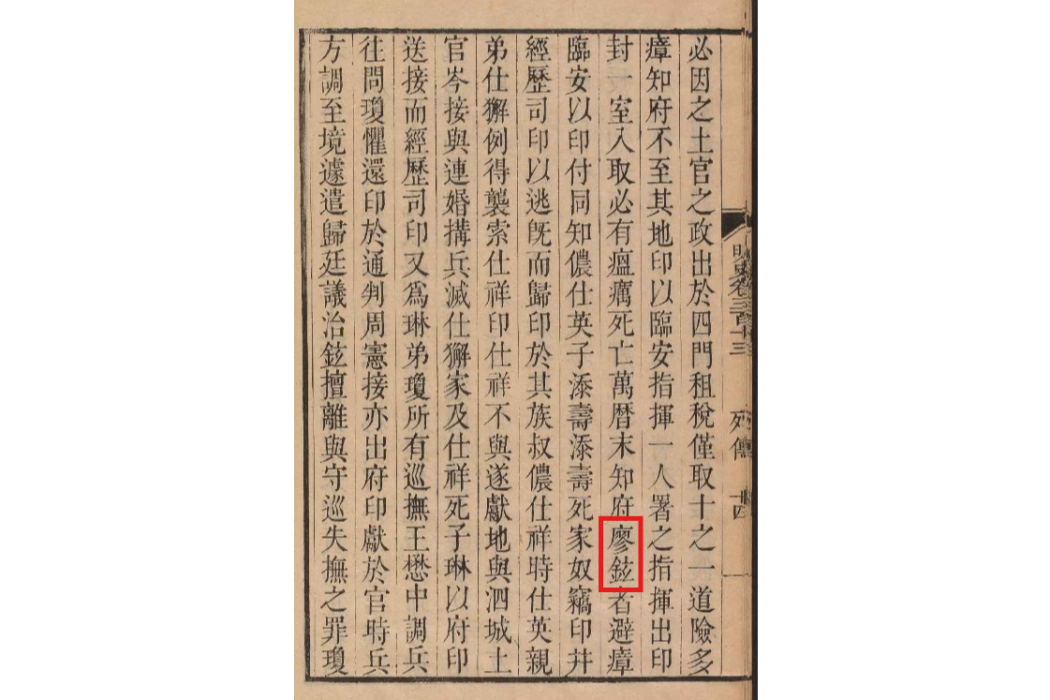 必因之土官之政出於四門租稅僅取十之一道險多
瘴知府不至其地印以臨安指揮一人署之指揮出印
封一室入取必有瘟癘死亡萬曆末知府廖鉉者避瘴
臨安以印付同知儂仕英子添壽添壽死家奴竊印并
經歷司印以逃旣而歸印於其族叔儂仕祥時仕英親
弟仕獬例得襲索仕祥印仕祥不與遂獻地與泗城土
官岑接與連婚搆兵滅仕獬家及仕祥死子琳以府印
送接而經歷司印又爲琳弟瓊所有巡撫王懋中調兵
往問瓊懼還印於通判周憲接亦出府印獻於官時兵
方調至境遽遣歸廷議治鉉擅離與守巡失撫之罪瓊
明史卷三百十三
列傳
十四